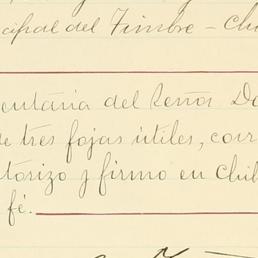 cipal del Timbre - Chi
entaria del Señor Do
e tres fojas útiles, corr
torizo y firmo en Chil
fé.